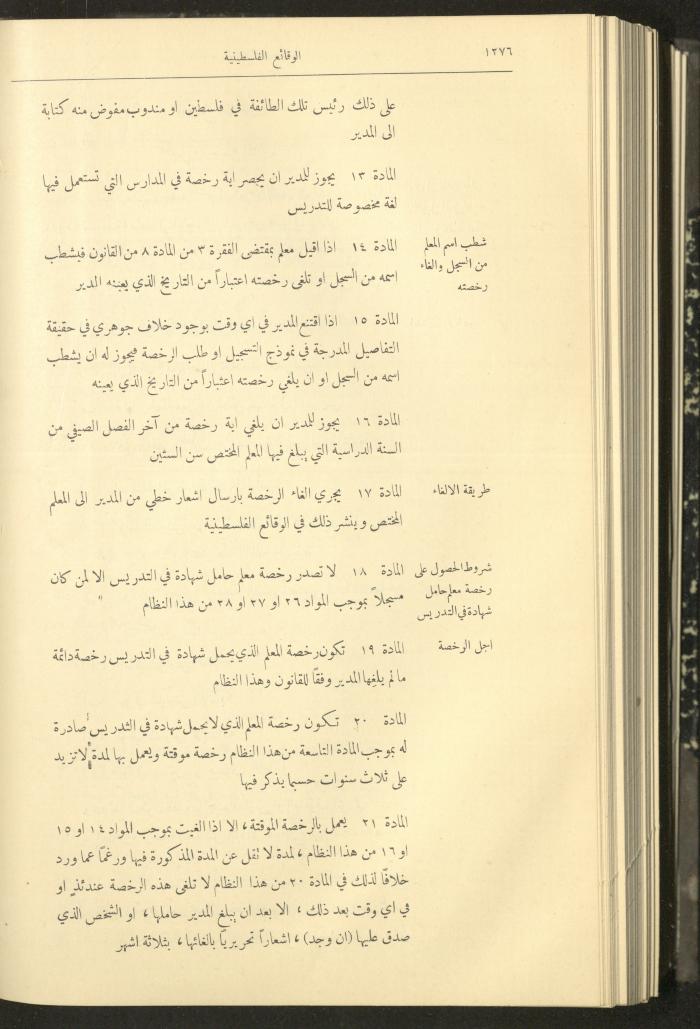 ١٢٧٦
الوقائع الفلسطينية
على ذلك رئيس تلك الطائفة في فلسطين او مندوب مفوض منه كتابة
الى المدير
المادة ١٣ يجوز للمدير ان يحصر اية رخصة في المدارس التي تستعمل فيها
لغة مخصوصة للتدريس
شطب اسم المعلم
من السجل والغاء
رخصته
المادة ١٤ اذا اقيل معلم بمقتضى الفقرة ٣ من المادة ٨ من القانون فيشطب
اسمه من السجل او تلغى رخصته اعتباراً من التاريخ الذي يعينه المدير
المادة ١٥ اذا اقتنع المدير في اي وقت بوجود خلاف جوهري في حقيقة
التفاصيل المدرجة في نموذج التسجيل او طلب الرخصة فيجوز له ان يشطب
اسمه من السجل او ان يلغي رخصته اعتباراً من التاريخ الذي يعينه
المادة ١٦ يجوز للمدير ان يلغي اية رخصة من آخر الفصل الصيفي من
السنة الدراسية التي يبلغ فيها المعلم المختص سن الستين
طريقة الالغاء
المادة ١٧ يجري الغاء الرخصة بارسال اشعار خطي من المدير الى المعلم
المختص وينشر ذلك في الوقائع الفلسطينية
شروط الحصول على
رخصة معلم حامل
شهادة في التدريس
المادة ١٨ لا تصدر رخصة معلم حامل شهادة في التدريس الا لمن كان
مسجلاً بموجب المواد ٢٦ او ٢٧ او ٢٨ من هذا النظام
اجل الرخصة
المادة ١٩ تكون رخصة المعلم الذي يحمل شهادة في التدريس رخصة دائمة
ما لم يلغها المدير وفقاً للقانون وهذا النظام
المادة ٢٠ تكون رخصة المعلم الذي لا يحمل شهادة في التدريس صادرة
له بموجب المادة التاسعة من هذا النظام رخصة موقتة ويعمل بها لمدة لا تزيد
على ثلاث سنوات حسبما يذكر فيها
المادة ٢١ يعمل بالرخصة الموقتة، الا اذا الغيت بموجب المواد ١٤ او ١٥
او ١٦ من هذا النظام، لمدة لا تقل عن المدة المذكورة فيها ورغماً عما ورد
خلافاً لذلك في المادة ٢٠ من هذا النظام لا تلغى هذه الرخصة عندئذٍ او
في اي وقت بعد ذلك، الا بعد ان يبلغ المدير حاملها، او الشخص الذي
صدق عليها (ان وجد)، اشعاراً تحريرياً بالغائها، بثلاثة اشهر